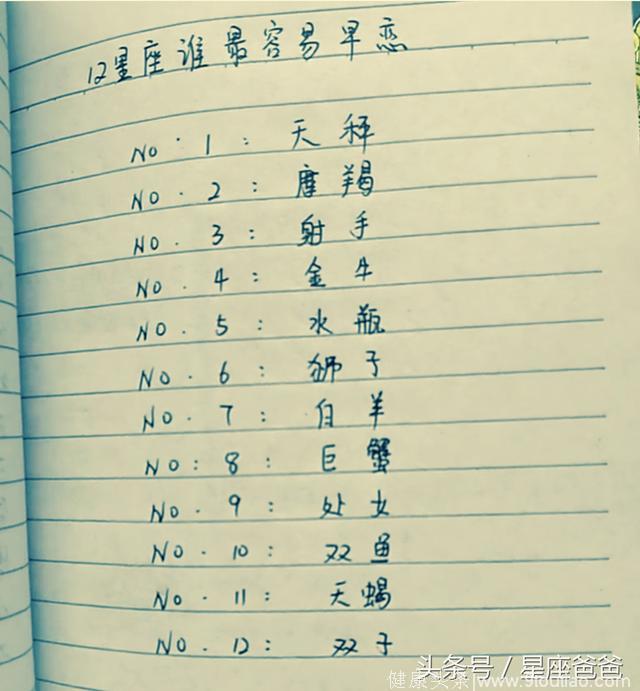 12星座谁最容易早恋
NO.1：天秤
NO.2：摩羯
NO.3：射手
NO.4：金牛
NO.5：水瓶
NO.6：狮子
NO.7：白羊
NO:8：巨蟹
NO.9：处女
NO.10：双鱼
NO.11：天蝎
NO.12：双子
头条号／星座爸爸
健康头条